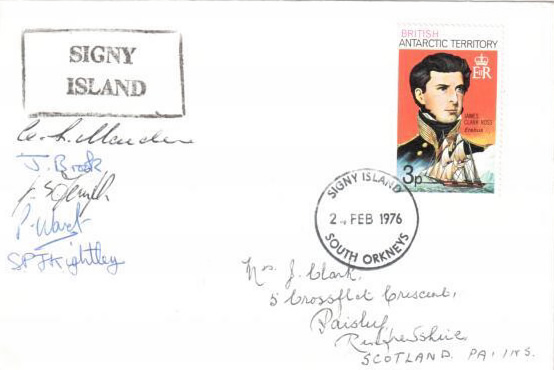 SIGNY
ISLAND
BRITISH
ANTARCTIC TERRITORY
E R
JAMES
CLARK ROSS
Erebus
3p
J. Brook
P. Ward
SPJ Kightley
SIGNY ISLAND
2 FEB 1976
SOUTH ORKNEYS
Mrs J. Clark,
5 Crossflat Crescent,
Paisley,
Renfrewshire,
SCOTLAND. PA1